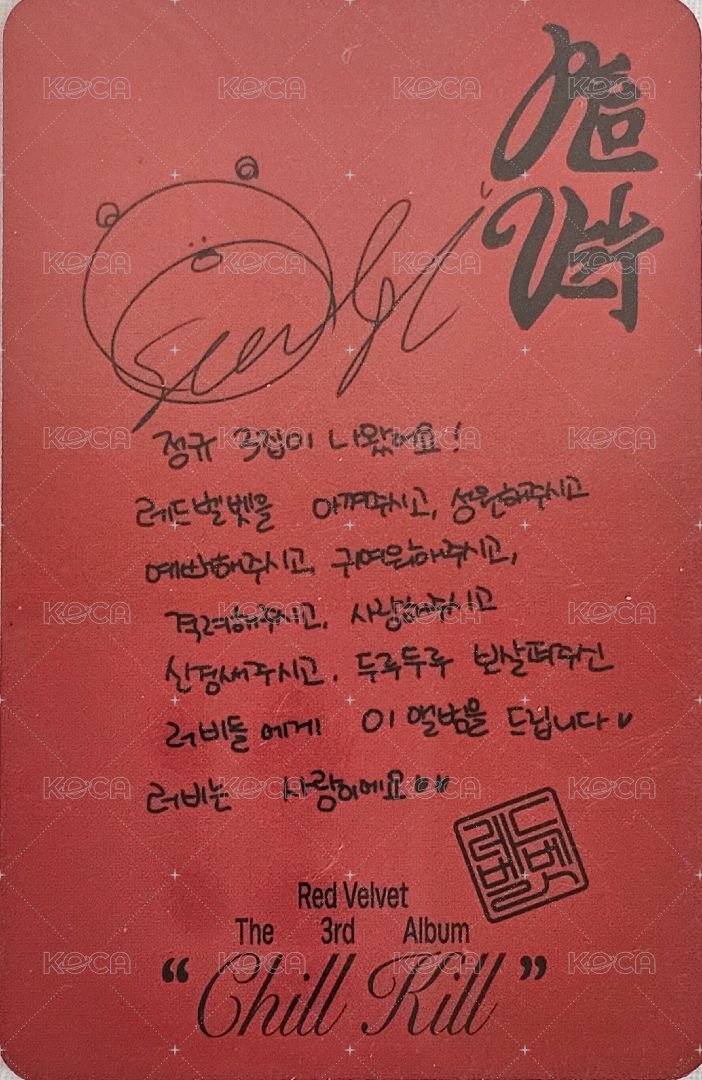 Seulgi
정규 3집이 나왔어요!
레드벨벳을 아껴주시고, 성원해주시고
예뻐해주시고, 귀여워해주시고,
격려해주시고, 사랑해주시고
신경써주시고, 두루두루 보살펴주신
러비들에게 이 앨범을 드립니다♥
러비는 사랑이에요♥♥
레드
벨벳
Red Velvet
The 3rd Album
“Chill Kill”
KOCA